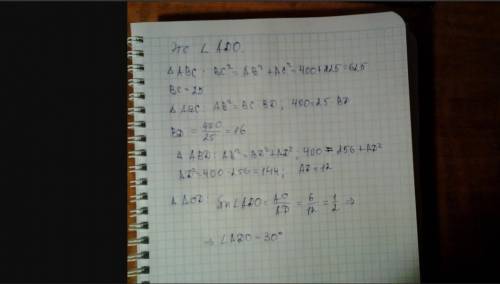 Это ∠ADO.
△ABC: BC² = AB² + AC² = 400 + 225 = 625
BC = 25
△ABC: AB² = BC·BD; 400 = 25·BD
BD = 400/25 = 16
△ABD: AB² = BD² + AD²; 400 = 256 + AD²
AD² = 400 - 256 = 144; AD = 12
△AOD: Sin∠ADO = AO/AD = 6/12 = 1/2 ⇒
⇒ ∠ADO = 30°